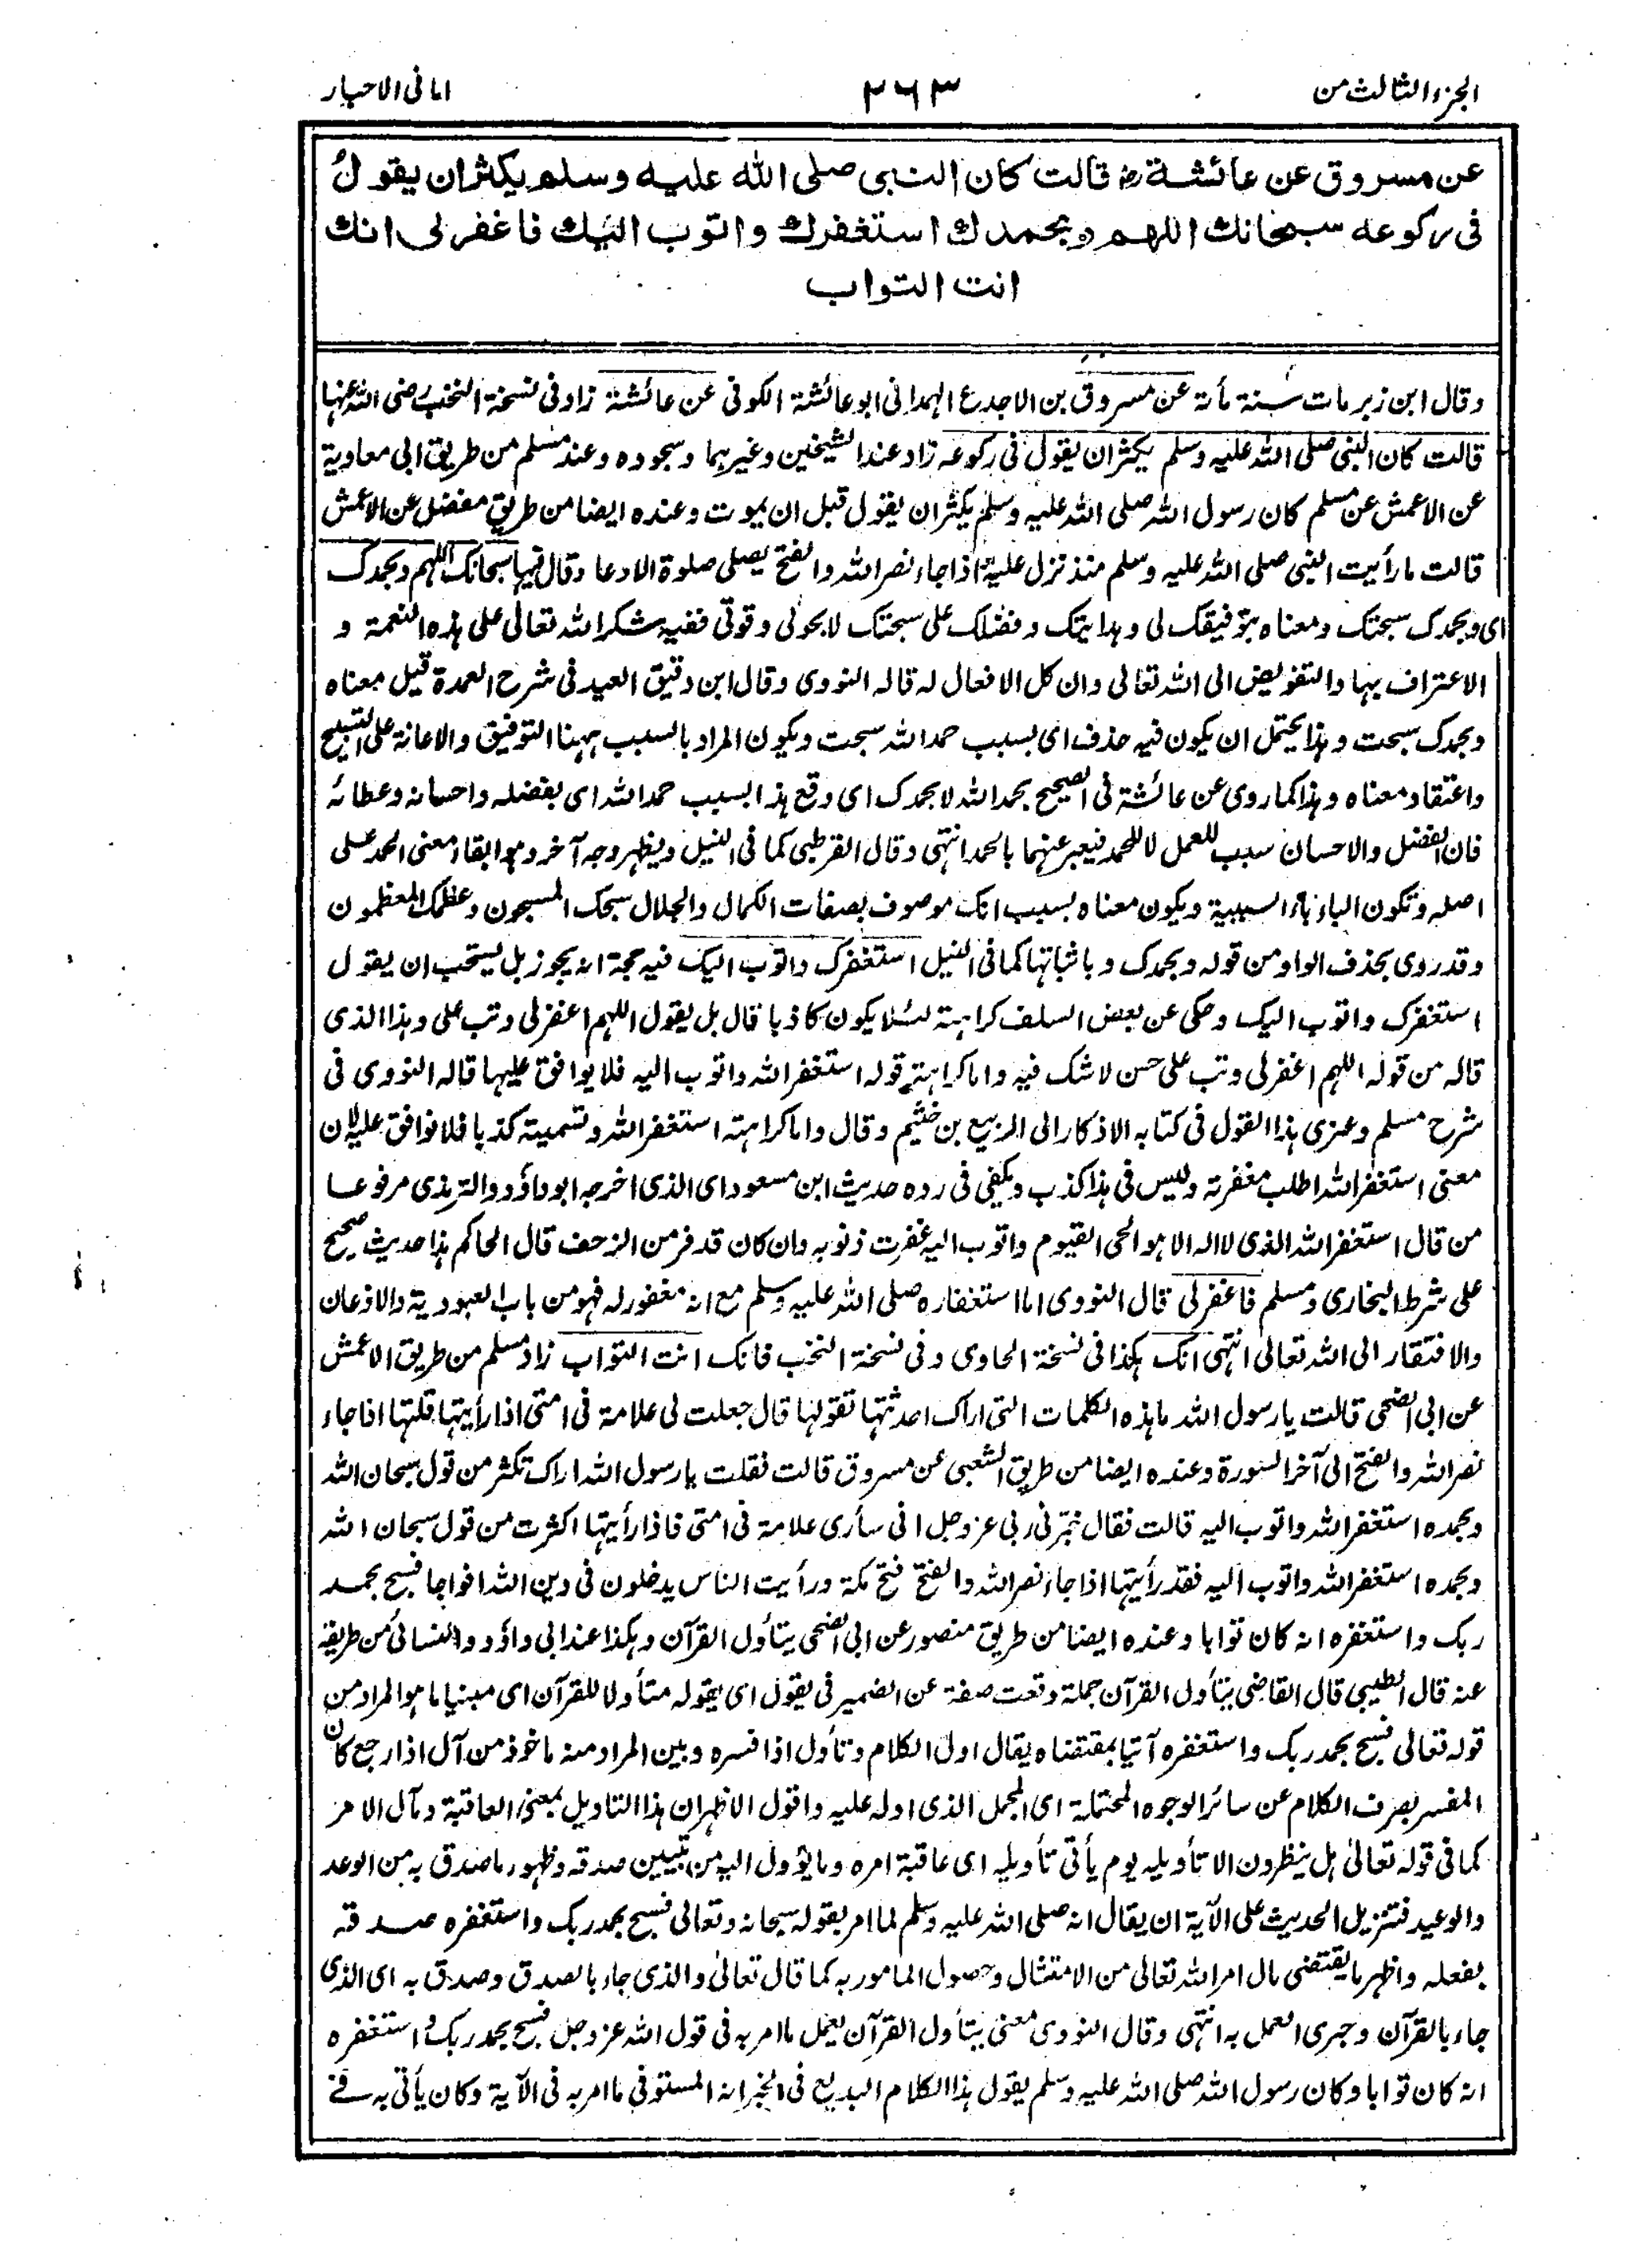 الجزء الثالث من ٢٦٣ امانى الاحبار
عن مسروق عن عائشة رض قالت كان النبى صلى الله عليه وسلم يكثر ان يقول
فى ركوعه سبحانك اللهم وبحمدك استغفرك واتوب اليك فاغفرلى انك
انت التواب
وقال ابن زبر مات سنة مأتة عن مسروق بن الاجدع الهمدانى ابو عائشة الكوفى عن عائشة زاد فى نسخة النخب رضى الله عنها
قالت كان النبى صلى الله عليه وسلم يكثر ان يقول فى ركوعه زاد عند الشيخين وغيرهما وسجوده وعند مسلم من طريق ابى معاوية
عن الاعمش عن مسلم كان رسول الله صلى الله عليه وسلم يكثر ان يقول قبل ان يموت وعنده ايضا من طريق مفضل عن الاعمش
قالت ما رأيت النبى صلى الله عليه وسلم منذ نزل عليه اذا جاء نصر الله والفتح يصلى صلوة الا دعا وقال فيها سبحانك اللهم وبحمدك
اى وبحمدك سبحتك ومعناه بتوفيقك لى وهدايتك وفضلك على سبحتك لا بحولى وقوتى ففيه شكر الله تعالى على هذه النعمة و
الاعتراف بها والتفويض الى الله تعالى وان كل الافعال له قاله النووى وقال ابن دقيق العيد فى شرح العمدة قيل معناه
وبحمدك سبحت وهذا يحتمل ان يكون فيه حذف اى بسبب حمد الله سبحت ويكون المراد بالسبب ههنا التوفيق والاعانة على التسبيح
واعتقاد معناه وهذا كما روى عن عائشة فى الصحيح بحمد الله لا بحمدك اى وقع هذا بسبب حمد الله اى بفضله واحسانه وعطائه
فان الفضل والاحسان سبب للعمل لا للحمد فيعبر عنهما بالحمد انتهى وقال القرطبى كما فى النيل ويظهر وجه آخر وهو ابقاء معنى الحمد على
اصله وتكون الباء باء السببية ويكون معناه بسبب انك موصوف بصفات الكمال والجلال سبحك المسبحون وعظمك المعظمون
وقد روى بحذف الواو من قوله وبحمدك وباثباتها كما فى النيل استغفرك واتوب اليك فيه حجة انه يجوز بل يستحب ان يقول
استغفرك واتوب اليك وحكى عن بعض السلف كراهته لئلا يكون كاذبا قال بل يقول اللهم اغفر لى وتب على وهذا الذى
قاله من قوله اللهم اغفر لى وتب على حسن لا شك فيه واما كراهته قوله استغفر الله واتوب اليه فلا يوافق عليها قاله النووى فى
شرح مسلم وعزى هذا القول فى كتابه الاذكار الى الربيع بن خثيم وقال واما كراهته استغفر الله وتسميته كذبا فلا نوافق عليه لان
معنى استغفر الله اطلب مغفرته وليس فى هذا كذب ويكفى فى رده حديث ابن مسعود اى الذى اخرجه ابو داؤد والترمذى مرفوعا
من قال استغفر الله الذى لا اله الا هو الحى القيوم واتوب اليه غفرت ذنوبه وان كان قد فر من الزحف قال الحاكم هذا حديث صحيح
على شرط البخارى ومسلم فاغفرلى قال النووى اما استغفاره صلى الله عليه وسلم مع انه مغفور له فهو من باب العبودية والاذعان
والافتقار الى الله تعالى انتهى انك هكذا فى نسخة الحاوى وفى نسخة النخب فانك انت التواب زاد مسلم من طريق الاعمش
عن ابى الضحى قالت يا رسول الله ما هذه الكلمات التى اراك احدثتها تقولها قال جعلت لى علامة فى امتى اذا رأيتها قلتها اذا جاء
نصر الله والفتح الى آخر السورة وعنده ايضا من طريق الشعبى عن مسروق قالت فقلت يا رسول الله اراك تكثر من قول سبحان الله
وبحمده استغفر الله واتوب اليه قالت فقال خبرنى ربى عز وجل انى سأرى علامة فى امتى فاذا رأيتها اكثرت من قول سبحان الله
وبحمده استغفر الله واتوب اليه فقد رأيتها اذا جاء نصر الله والفتح فتح مكة ورأيت الناس يدخلون فى دين الله افواجا فسبح بحمد
ربك واستغفره انه كان توابا وعنده ايضا من طريق منصور عن ابى الضحى يتأول القرآن وهكذا عند ابى داؤد والنسائى من طريقه
عنه قال الطيبى قال القاضى يتأول القرآن جملة وقعت صفة عن الضمير فى يقول اى يقوله متأولا للقرآن اى مبنيا ما هو المراد من
قوله تعالى فسبح بحمد ربك واستغفره آتيا بمقتضاه يقال اول الكلام وتأول اذا فسره وبين المراد منه ماخوذ من آل اذا رجع كان
المفسر يصرف الكلام عن سائر الوجوه المحتملة اى المجمل الذى اوله عليه واقول الاظهر ان هذا التاويل بمعنى العاقبة ومآل الامر
كما فى قوله تعالى هل ينظرون الا تأويله يوم يأتى تأويله اى عاقبة امره وما يؤول اليه من تبيين صدقه وظهور ما صدق به من الوعد
والوعيد فتنزيل الحديث على الآية ان يقال انه صلى الله عليه وسلم لما امر بقوله سبحانه وتعالى فسبح بحمد ربك واستغفره صدقه
بفعله واظهر ما يقتضى مال امر الله تعالى من الامتثال وحصول المامور به كما قال تعالى والذى جاء بالصدق وصدق به اى الذى
جاء بالقرآن وجرى العمل به انتهى وقال النووى معنى يتأول القرآن يعمل ما امر به فى قول الله عز وجل فسبح بحمد ربك واستغفره
انه كان توابا وكان رسول الله صلى الله عليه وسلم يقول هذا الكلام البديع فى الخبر انه المستوفى ما امر به فى الآية وكان يأتى به فى